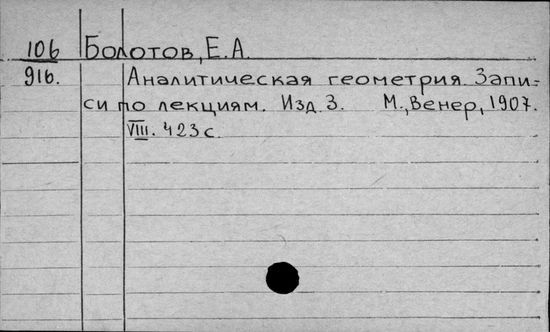 106 Болотов, Е.А.
916. Аналитическая геометрия. Запи-
си по лекциям. Изд. 3. М., Венер, 1907.
VIII. 423 с.